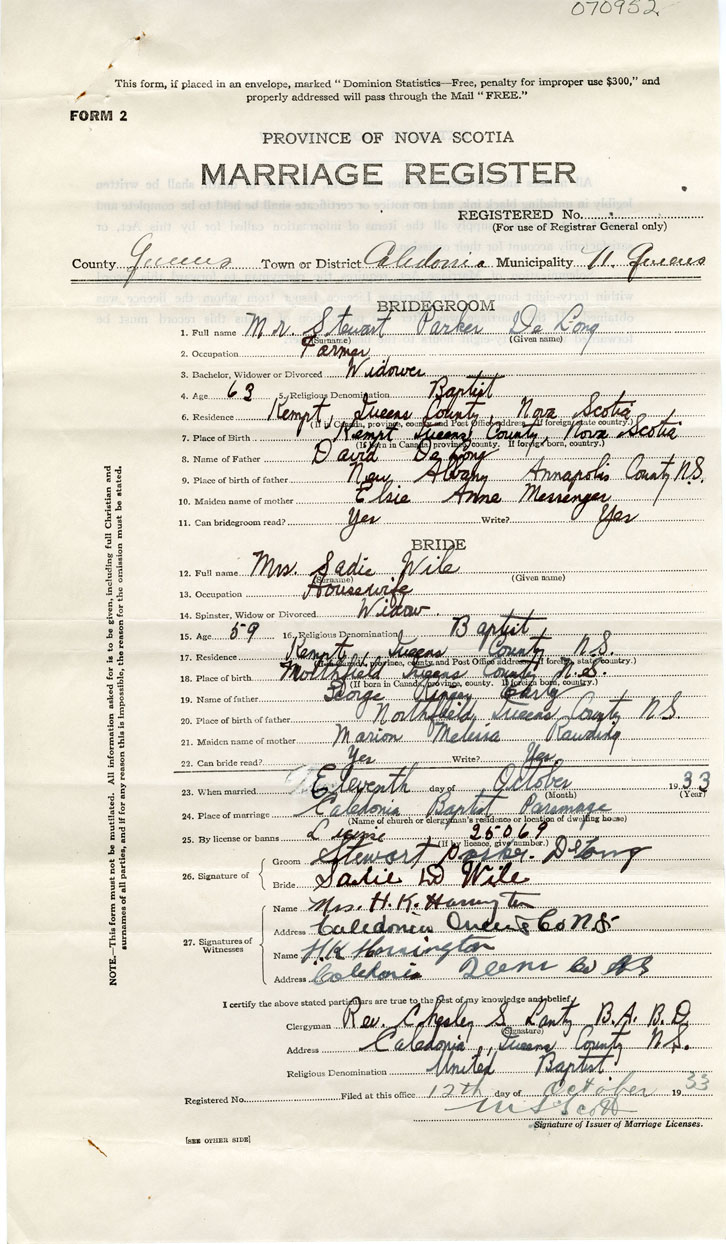 070952
This form, if placed in an envelope, marked "Dominion Statistics—Free, penalty for improper use $300," and
properly addressed will pass through the Mail "FREE."
FORM 2
PROVINCE OF NOVA SCOTIA
MARRIAGE REGISTER
REGISTERED No.
(For use of Registrar General only)
County Queens Town or District Caledonia Municipality N. Queens
BRIDEGROOM
1. Full name Mr Stewart Parker De Long
(Surname) (Given name)
2. Occupation Farmer
3. Bachelor, Widower or Divorced Widower
4. Age 63 5. Religious Denomination Baptist
6. Residence Kempt, Queens County, Nova Scotia
(If in Canada, province, county and Post Office address. If foreign state country.)
7. Place of Birth Kempt Queens County, Nova Scotia
(If born in Canada, province, county. If foreign born, country.)
8. Name of Father David De Long
9. Place of birth of father New Albany Annapolis County N.S.
10. Maiden name of mother Elsie Anne Messenger
11. Can bridegroom read? Yes Write? Yes
BRIDE
12. Full name Mrs. Sadie Wile
(Surname) (Given name)
13. Occupation Housewife
14. Spinster, Widow or Divorced Widow
15. Age 59 16. Religious Denomination Baptist
17. Residence Kempt Queens County N.S.
(If in Canada, province, county and Post Office address. If foreign, state country.)
18. Place of birth Northfield Queens County N.S.
(If born in Canada, province, county. If foreign born, country.)
19. Name of father George
20. Place of birth of father Northfield, Queens County N S
21. Maiden name of mother Marion Melissa
22. Can bride read? Yes Write? Yes
23. When married Eleventh day of October 1933
(Month) (Year)
24. Place of marriage Caledonia Baptist Parsonage
(Name of church or clergyman's residence or location of dwelling house)
25. By license or banns 25069
(If by licence, give number.)
26. Signature of
Groom Stewart Parker DeLong
Bride Sadie D Wile
27. Signatures of
Witnesses
Name Mrs. H. K. Harrington
Address Caledonia Queens Co N S
Name H.K Harrington
Address Caledonia Queens Co N S
I certify the above stated particulars are true to the best of my knowledge and belief.
Clergyman Rev. Chesley S Lantz B.A. B.D.
(Signature)
Address Caledonia, Queens County N.S.
Religious Denomination United Baptist
Registered No. Filed at this office 12th day of October 1933
Scott
Signature of Issuer of Marriage Licenses.
[SEE OTHER SIDE]
NOTE.—This form must not be mutilated. All information asked for is to be given, including full Christian and
surnames of all parties, and if for any reason this is impossible, the reason for the omission must be stated.